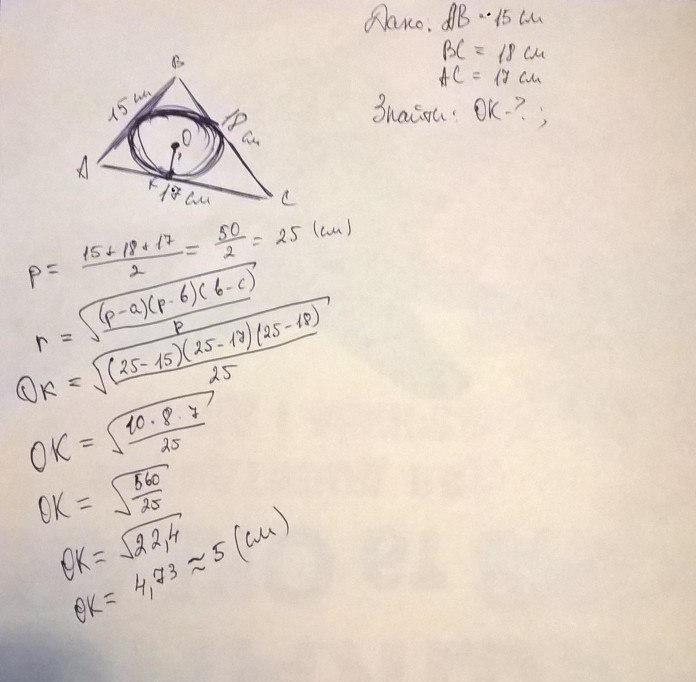 Дано: AB = 15 см
BC = 18 см
AC = 17 см
Знайти: OK - ? ;
B
15 см
18 см
O
A
K
17 см
C
p = (15+18+17)/2 = 50/2 = 25 (см)
r = √((p-a)(p-b)(b-c)/p)
OK = √((25-15)(25-17)(25-18)/25)
OK = √(10·8·7/25)
OK = √(560/25)
OK = √22,4
OK = 4,73 ≈ 5 (см)